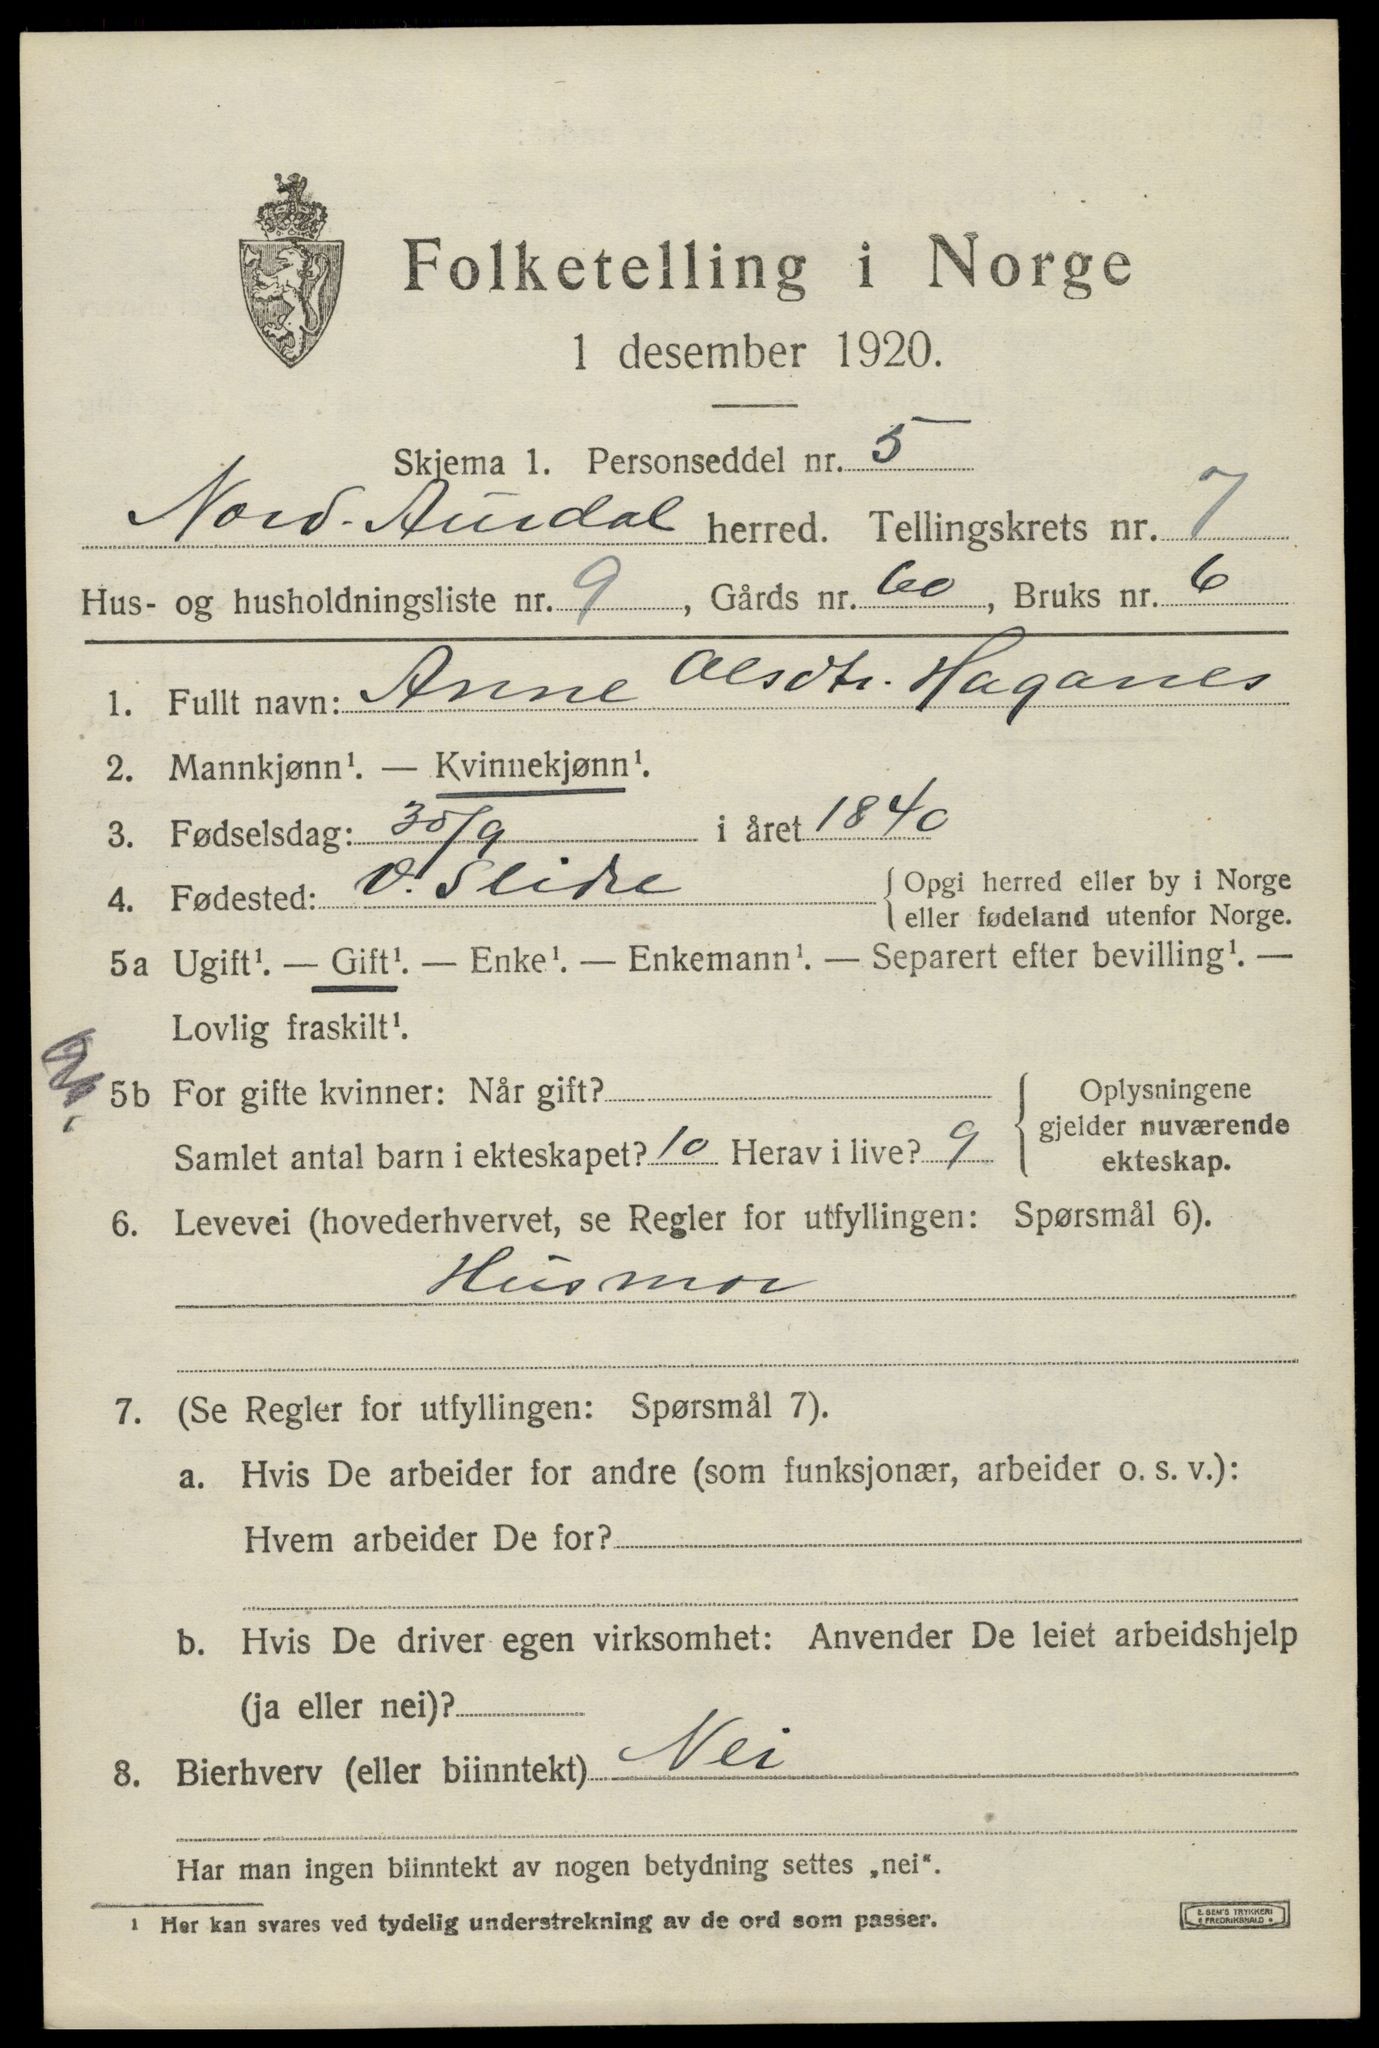 Folketelling i Norge
1 desember 1920.
Skjema 1. Personseddel nr. 5
Nord-Aurdal herred. Tellingskrets nr. 7
Hus- og husholdningsliste nr. 9, Gårds nr. 60, Bruks nr. 6
1. Fullt navn: Anne Olesdtr. Haganes
2. Mannkjønn¹. — Kvinnekjønn¹.
3. Fødselsdag: 30/9 i året 1840
4. Fødested: V. Slidre { Opgi herred eller by i Norge
eller fødeland utenfor Norge.
5a Ugift¹. — Gift¹. — Enke¹. — Enkemann¹. — Separert efter bevilling¹. —
Lovlig fraskilt¹.
5b For gifte kvinner: Når gift?
Samlet antal barn i ekteskapet? 10 Herav i live? 9
{ Oplysningene
gjelder nuværende
ekteskap.
6. Levevei (hovederhvervet, se Regler for utfyllingen: Spørsmål 6).
Husmor
7. (Se Regler for utfyllingen: Spørsmål 7).
a. Hvis De arbeider for andre (som funksjonær, arbeider o. s. v.):
Hvem arbeider De for?
b. Hvis De driver egen virksomhet: Anvender De leiet arbeidshjelp
(ja eller nei)?
8. Bierhverv (eller biinntekt) Nei
Har man ingen biinntekt av nogen betydning settes „nei“.
¹ Her kan svares ved tydelig understrekning av de ord som passer.
E. SEM'S TRYKKERI
FREDRIKSHALD